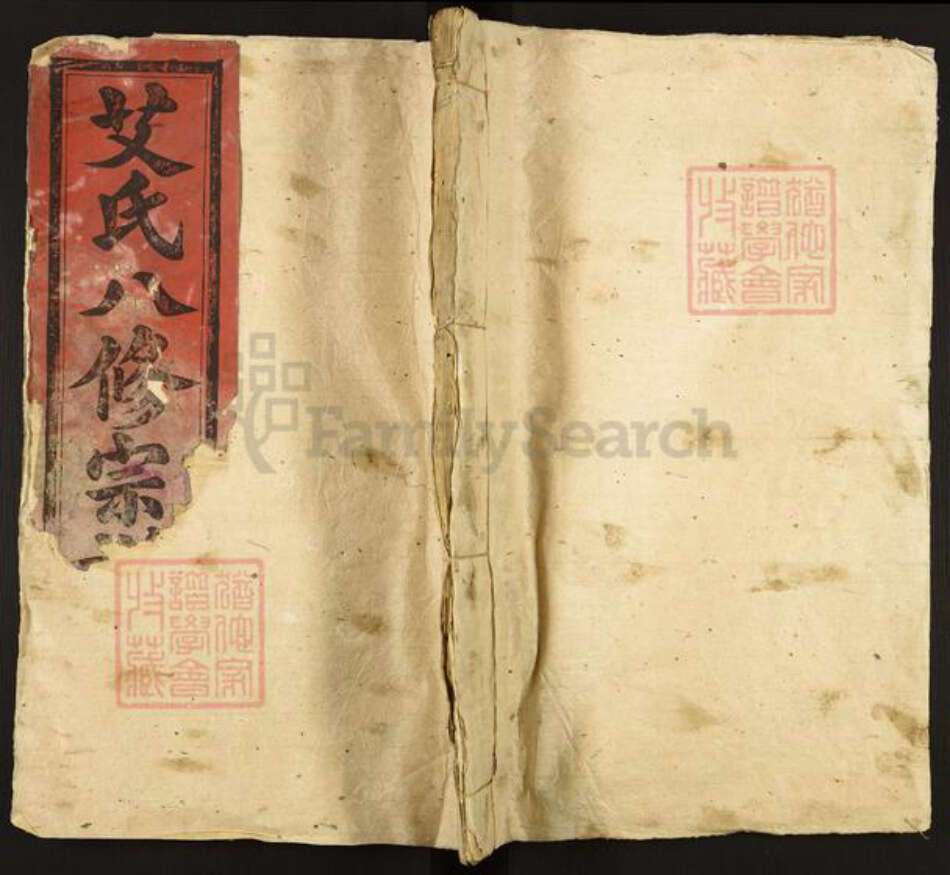 艾氏八修宗
猶他家
譜學會
收藏
猶他家
譜學會
收藏
FamilySearch